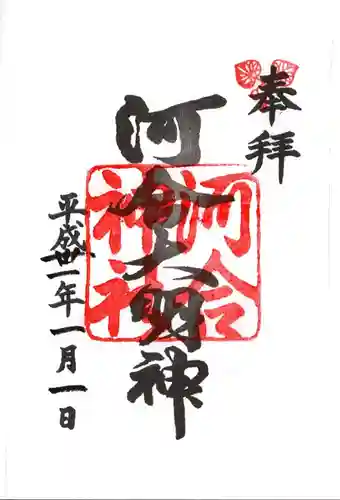 奉拝
河合大明神
河合
神社
平成卅一年一月一日